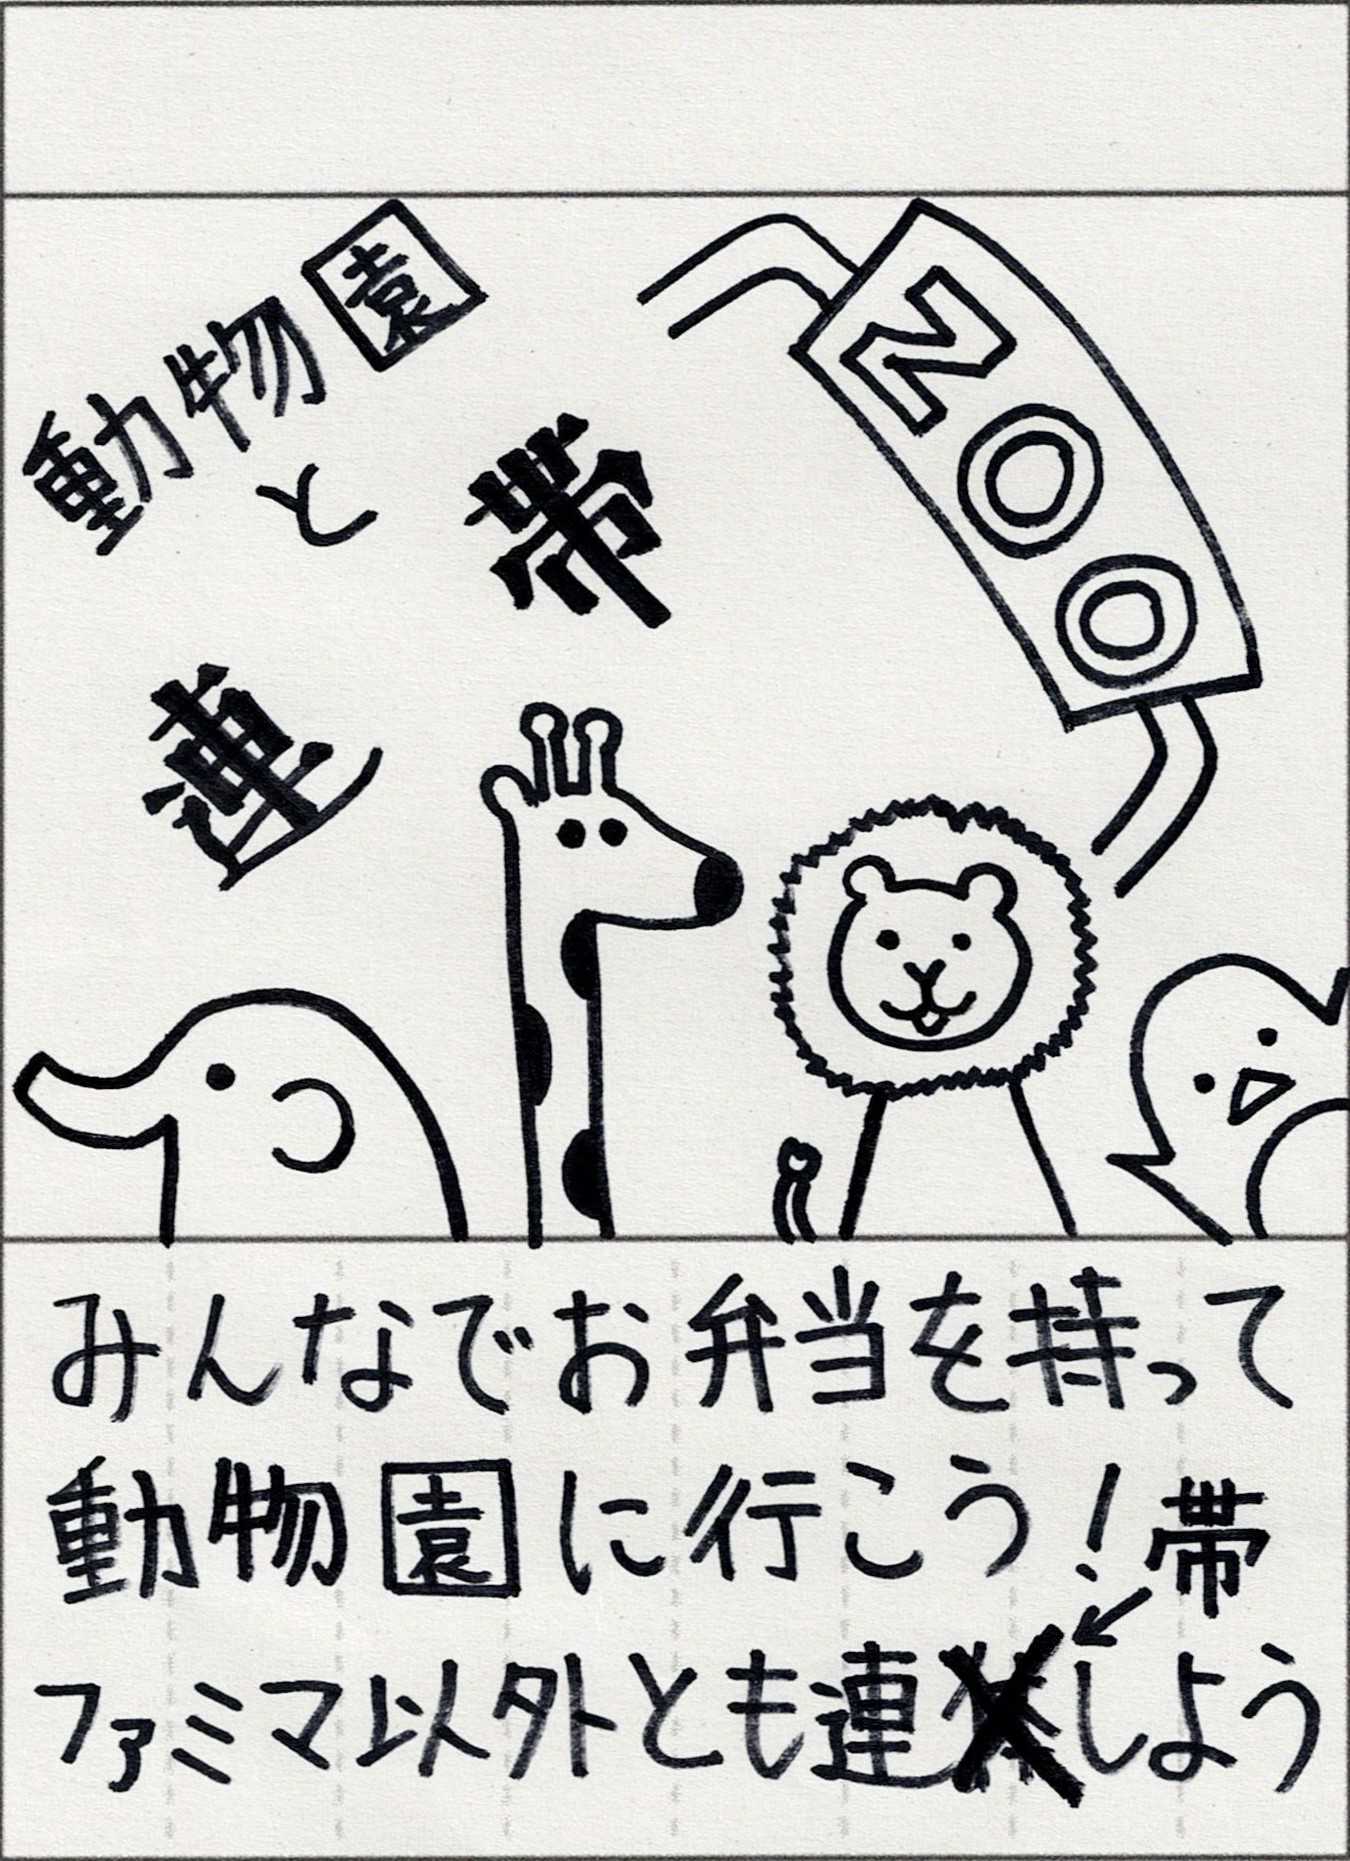 動物園
と
連帯
ZOO
みんなでお弁当を持って
動物園に行こう!帯
ファミマ以外とも連しよう